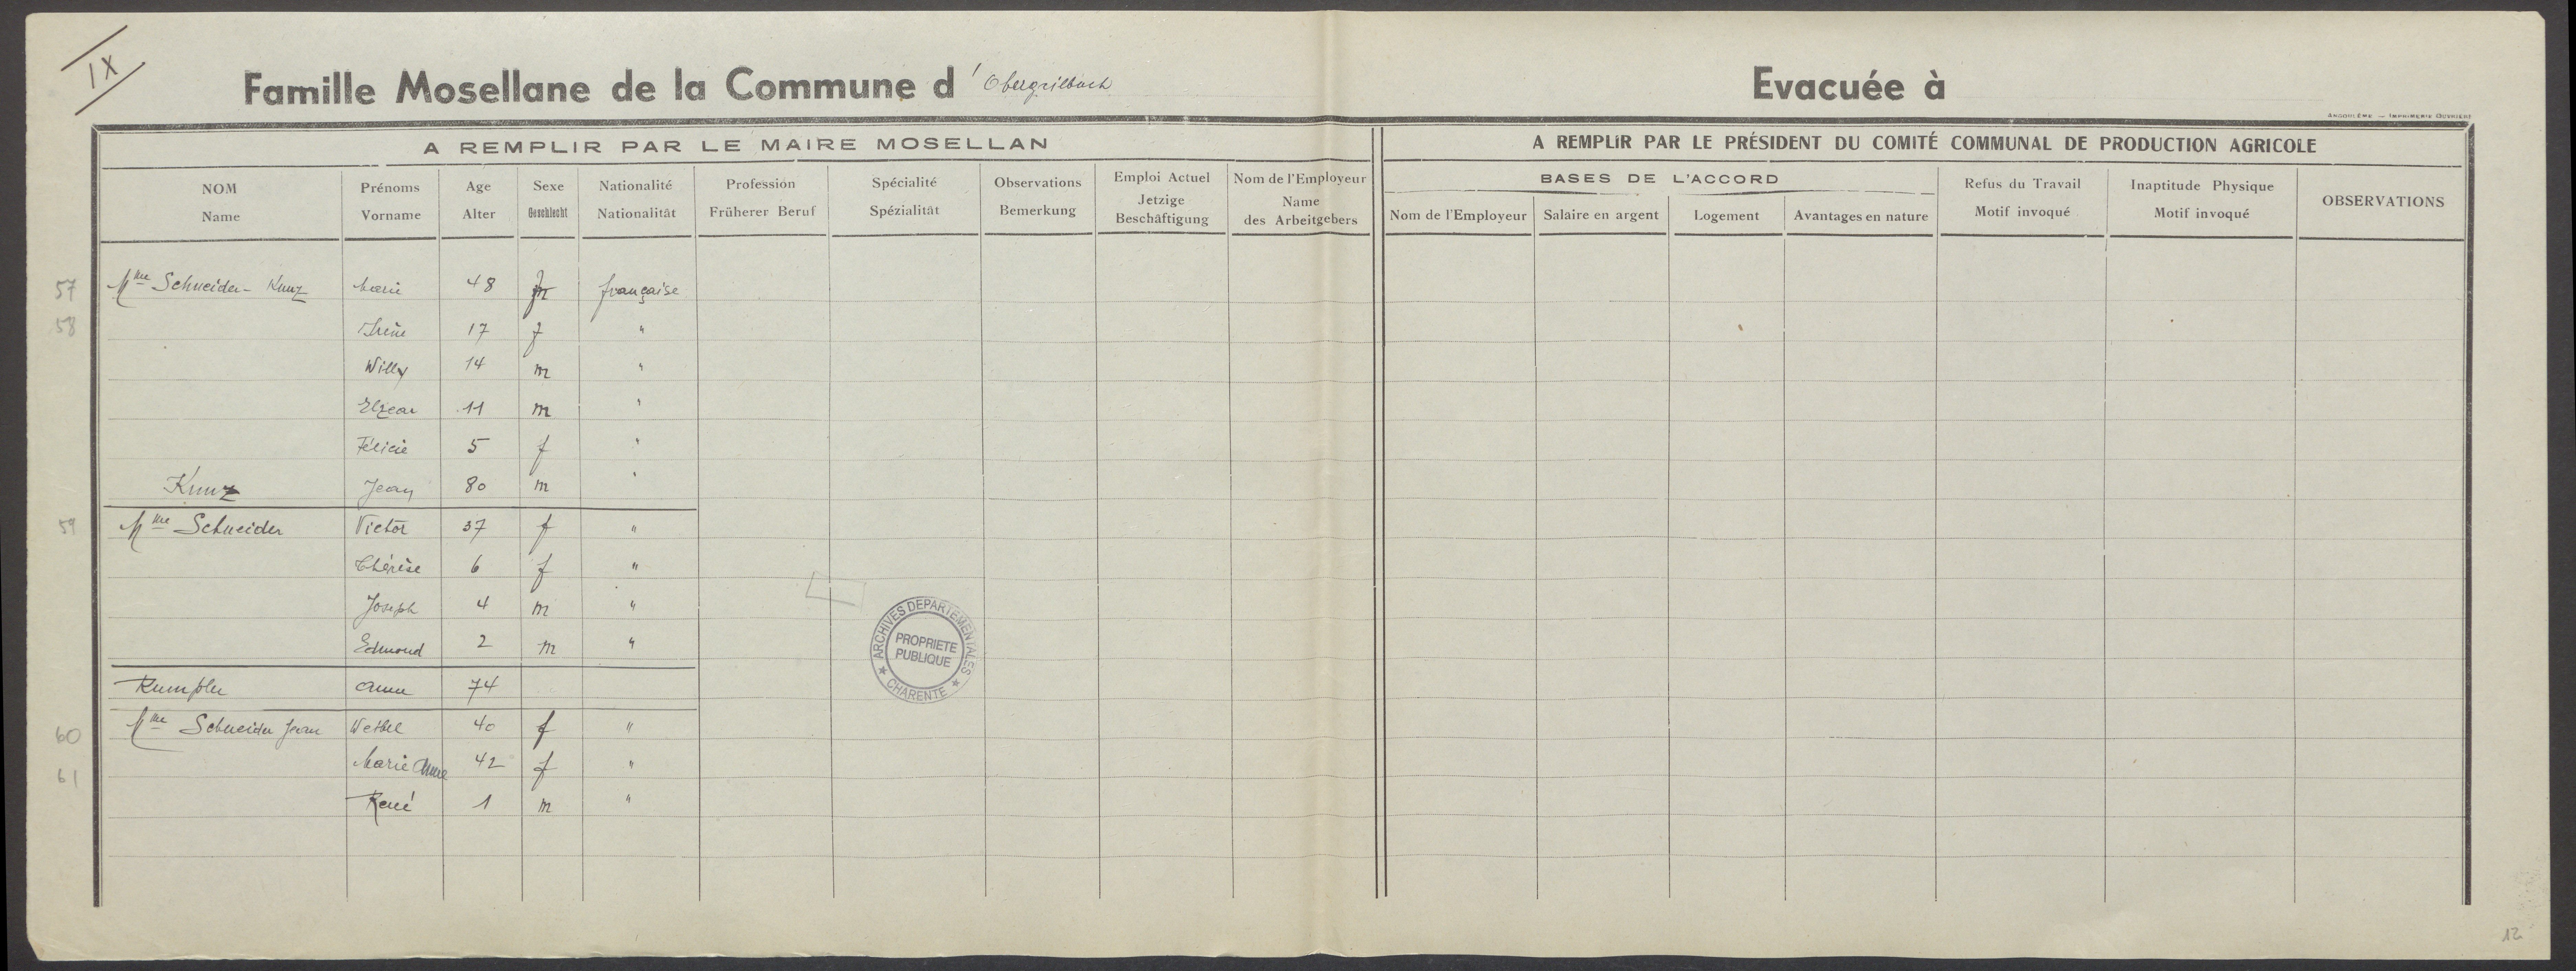 IX
Famille Mosellane de la Commune d'Obergailbach
Evacuée à
ANGOULÊME — IMPRIMERIE OUVRIÈRE
A REMPLIR PAR LE MAIRE MOSELLAN
A REMPLIR PAR LE PRÉSIDENT DU COMITÉ COMMUNAL DE PRODUCTION AGRICOLE
BASES DE L'ACCORD
NOM Name
Prénoms Vorname
Age Alter
Sexe Geschlecht
Nationalité Nationalität
Profession Früherer Beruf
Spécialité Spézialität
Observations Bemerkung
Emploi Actuel Jetzige Beschäftigung
Nom de l'Employeur Name des Arbeitgebers
Nom de l'Employeur
Salaire en argent
Logement
Avantages en nature
Refus du Travail Motif invoqué
Inaptitude Physique Motif invoqué
OBSERVATIONS
57 Mme Schneider - Kunz Marie 48 f française
58 Irène 17 f "
Willy 14 m "
Elzear 11 m "
Félicie 5 f "
Kunz Jean 80 m "
59 Mme Schneider Victor 37 f "
Thérèse 6 f "
Joseph 4 m "
Edmond 2 m "
Rumpler Anne 74
60 Mme Schneider Jean 40 f "
61 Marie Anne 42 f "
René 1 m "
ARCHIVES DEPARTEMENTALES
PROPRIETE
PUBLIQUE
★ CHARENTE ★
12